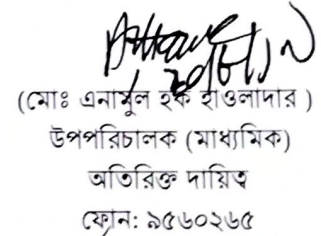 (মোঃ এনামুল হক হাওলাদার )
উপপরিচালক (মাধ্যমিক)
অতিরিক্ত দায়িত্ব
ফোন: ৯৫৬০২৬৫